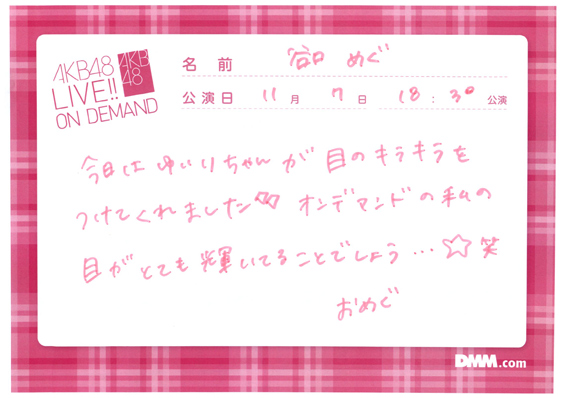 AKB48
LIVE!!
ON DEMAND
AKB
48
名前 谷口 めぐ
公演日 11月 7日 18:30 公演
今日はゆいりちゃんが目のキラキラを
つけてくれました オンデマンドの私の
目がとても輝いてることでしょう…☆笑
おめぐ
DMM.com